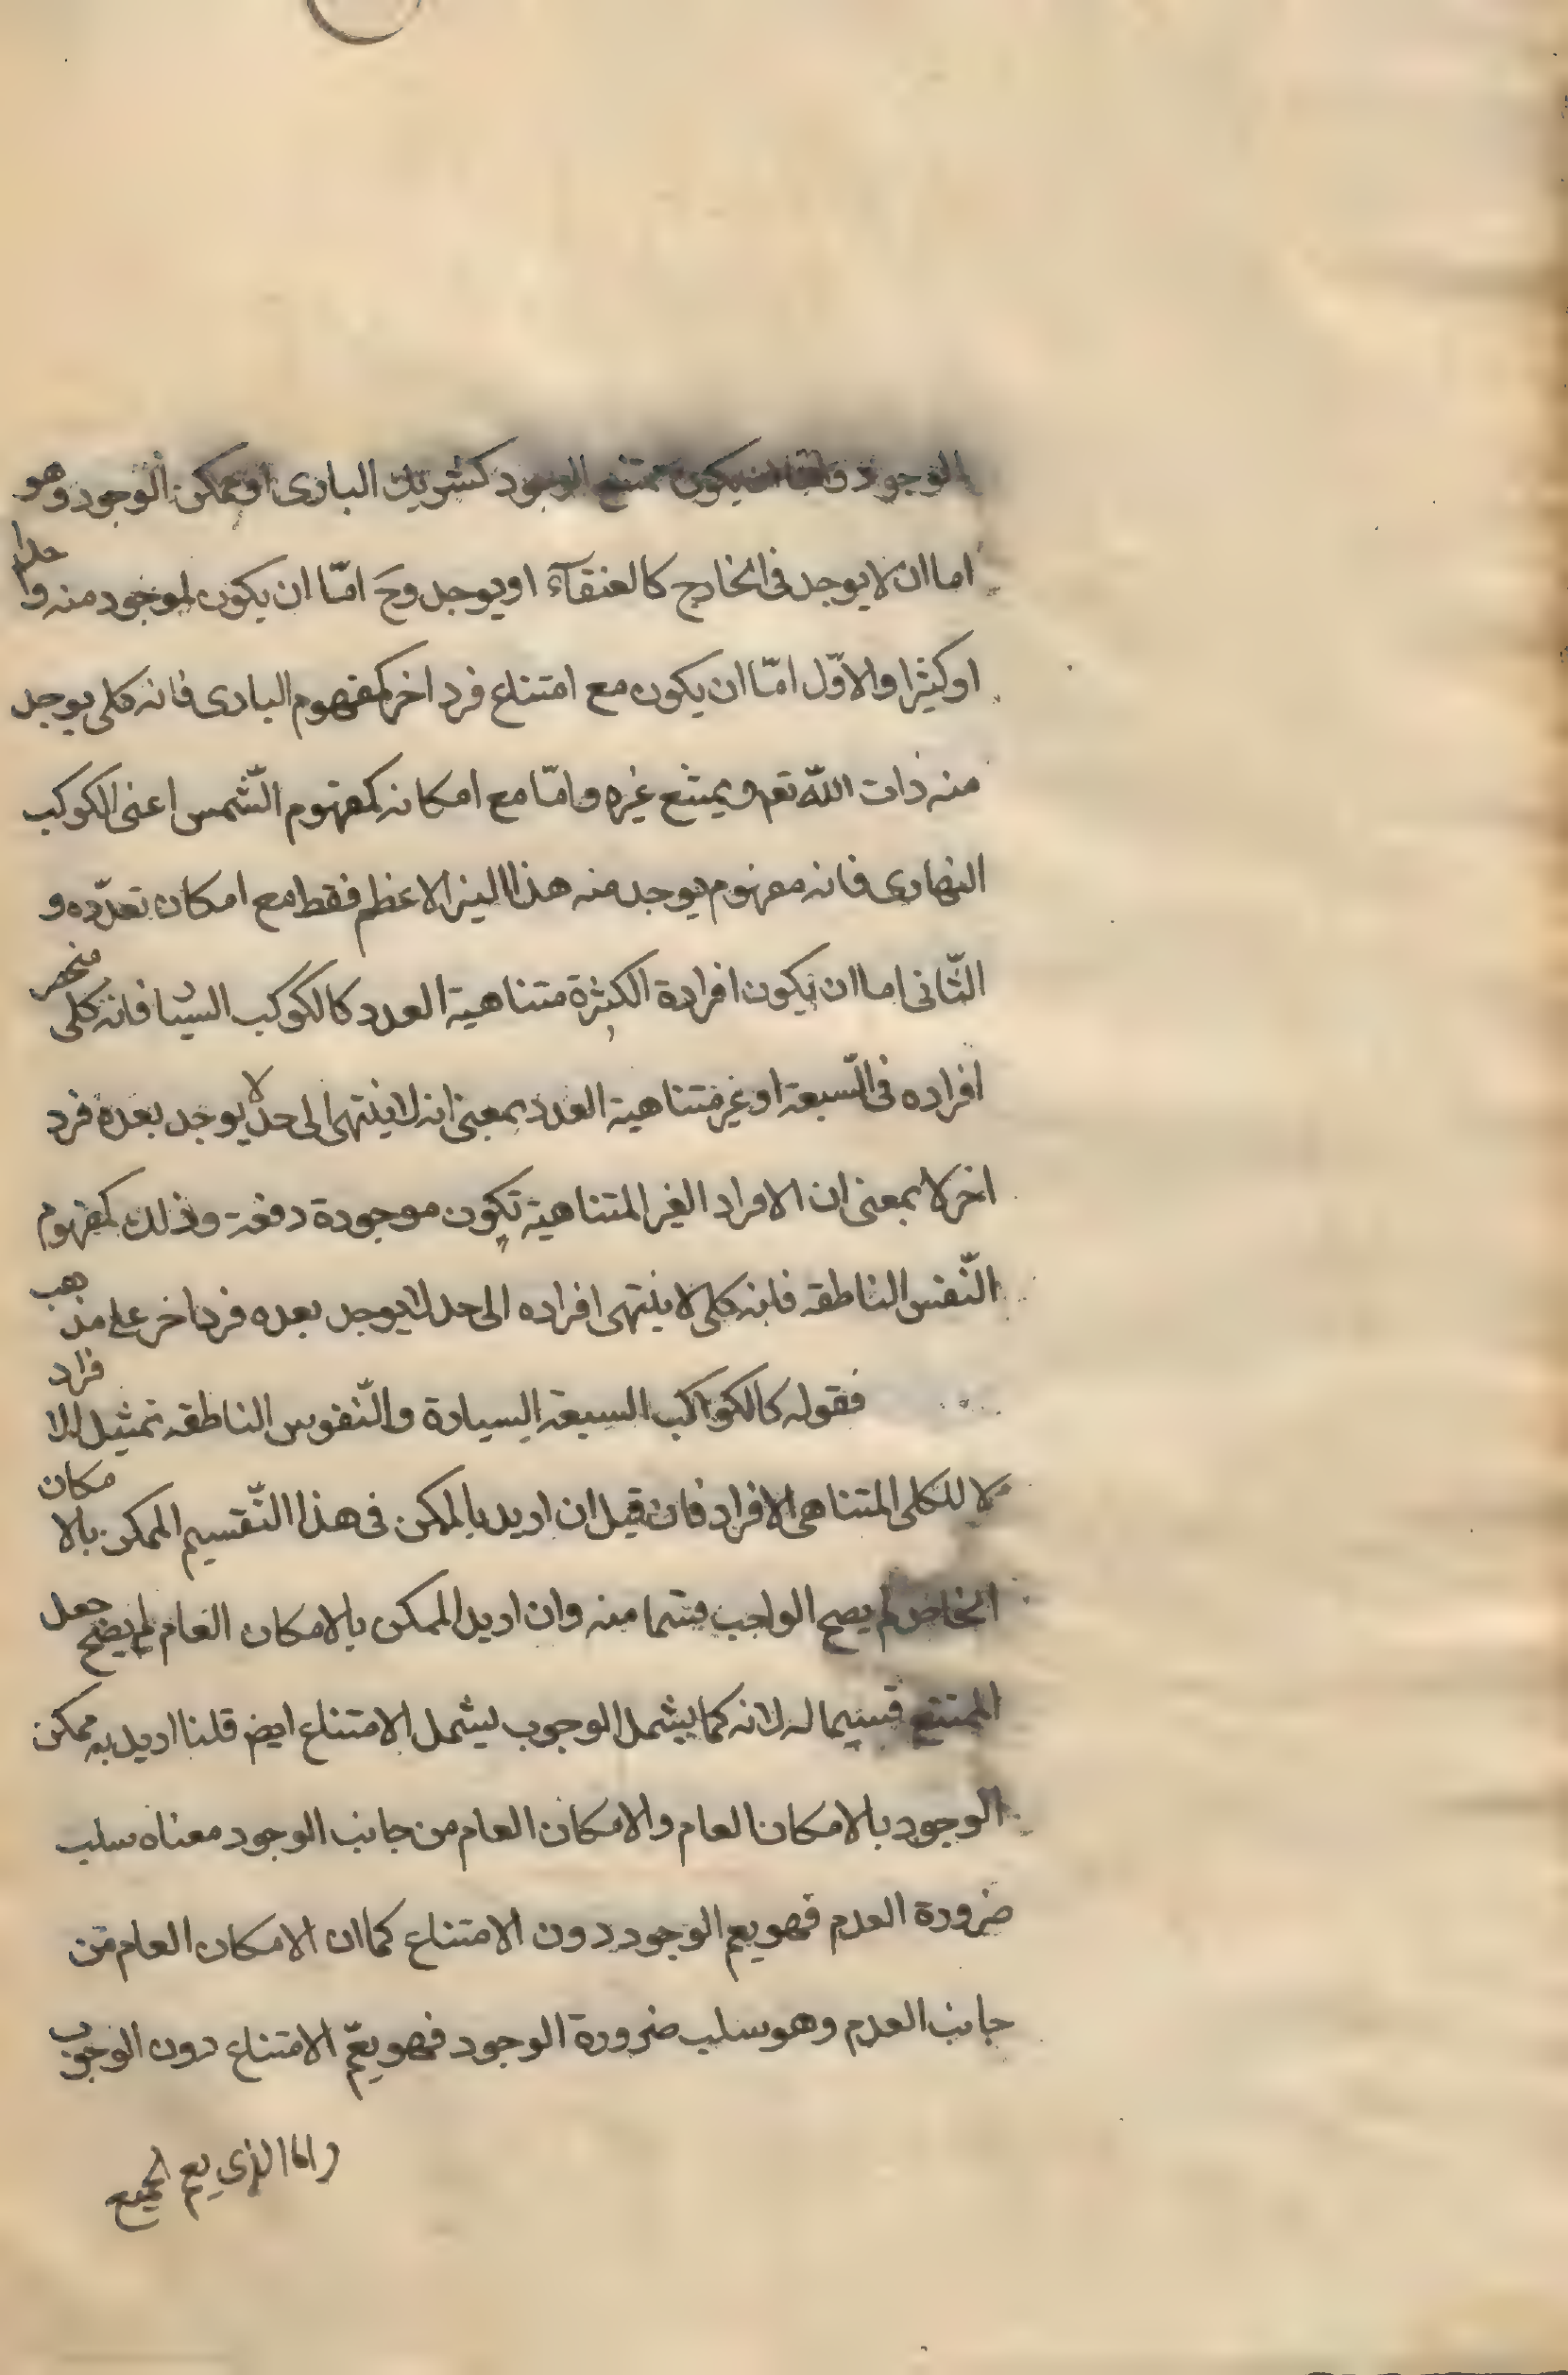 الوجود واما ان يكون ممتنع الوجود كشريك البارى او ممكن الوجود وهو
اما ان لا يوجد فى الخارج كالعنقآء او يوجد وح امّا ان يكون لموجود منه واحدا
او كثيرا والاوّل امّا ان يكون مع امتناع فرد اخر كمفهوم البارى فانه كلى يوجد
منه ذات اللّه تعم ويمتنع غيره وامّا مع امكانه كمفهوم الشّمس اعنى الكوكب
النهارى فانه مفهوم يوجد منه هذا النير الاعظم فقط مع امكان تعدّده و
الثّانى اما ان يكون افرادة الكثرة متناهية العدد كالكوكب السيار فانه كلى منحصر
افراده فى السّبعة او غير متناهية العدد بمعنى انه لا ينتهى الى حد لا يوجد بعده فرد
اخر لا بمعنى ان الافراد الغير المتناهية تكون موجودة دفعة وذلك كمفهوم
النّفس الناطقه فانه كلى لا ينتهى افراده الى حد لا يوجد بعده فرد اخر على مذهب
فقوله كالكواكب السبعة السيادة والنّفوس الناطقه تمثيل للافراد
لا للكلى المتناهى الافراد فان قيل ان اريد بالممكن فى هذا التّقسيم الممكن بالامكان
الخاص لم يصح الواجب قسما منه وان اريد الممكن بالامكان العام لم يصح جعل
الممتنع قسيما له لانه كما يشمل الوجوب يشمل الامتناع ايض قلنا اريد به ممكن
الوجود بالامكان العام والامكان العام من جانب الوجود معناه سلب
ضرورة العدم فهو يعم الوجود دون الامتناع كما ان الامكان العام من
جانب العدم وهو سلب ضرورة الوجود فهو يعمّ الامتناع دون الوجوب
واما الذى يعم الجميع